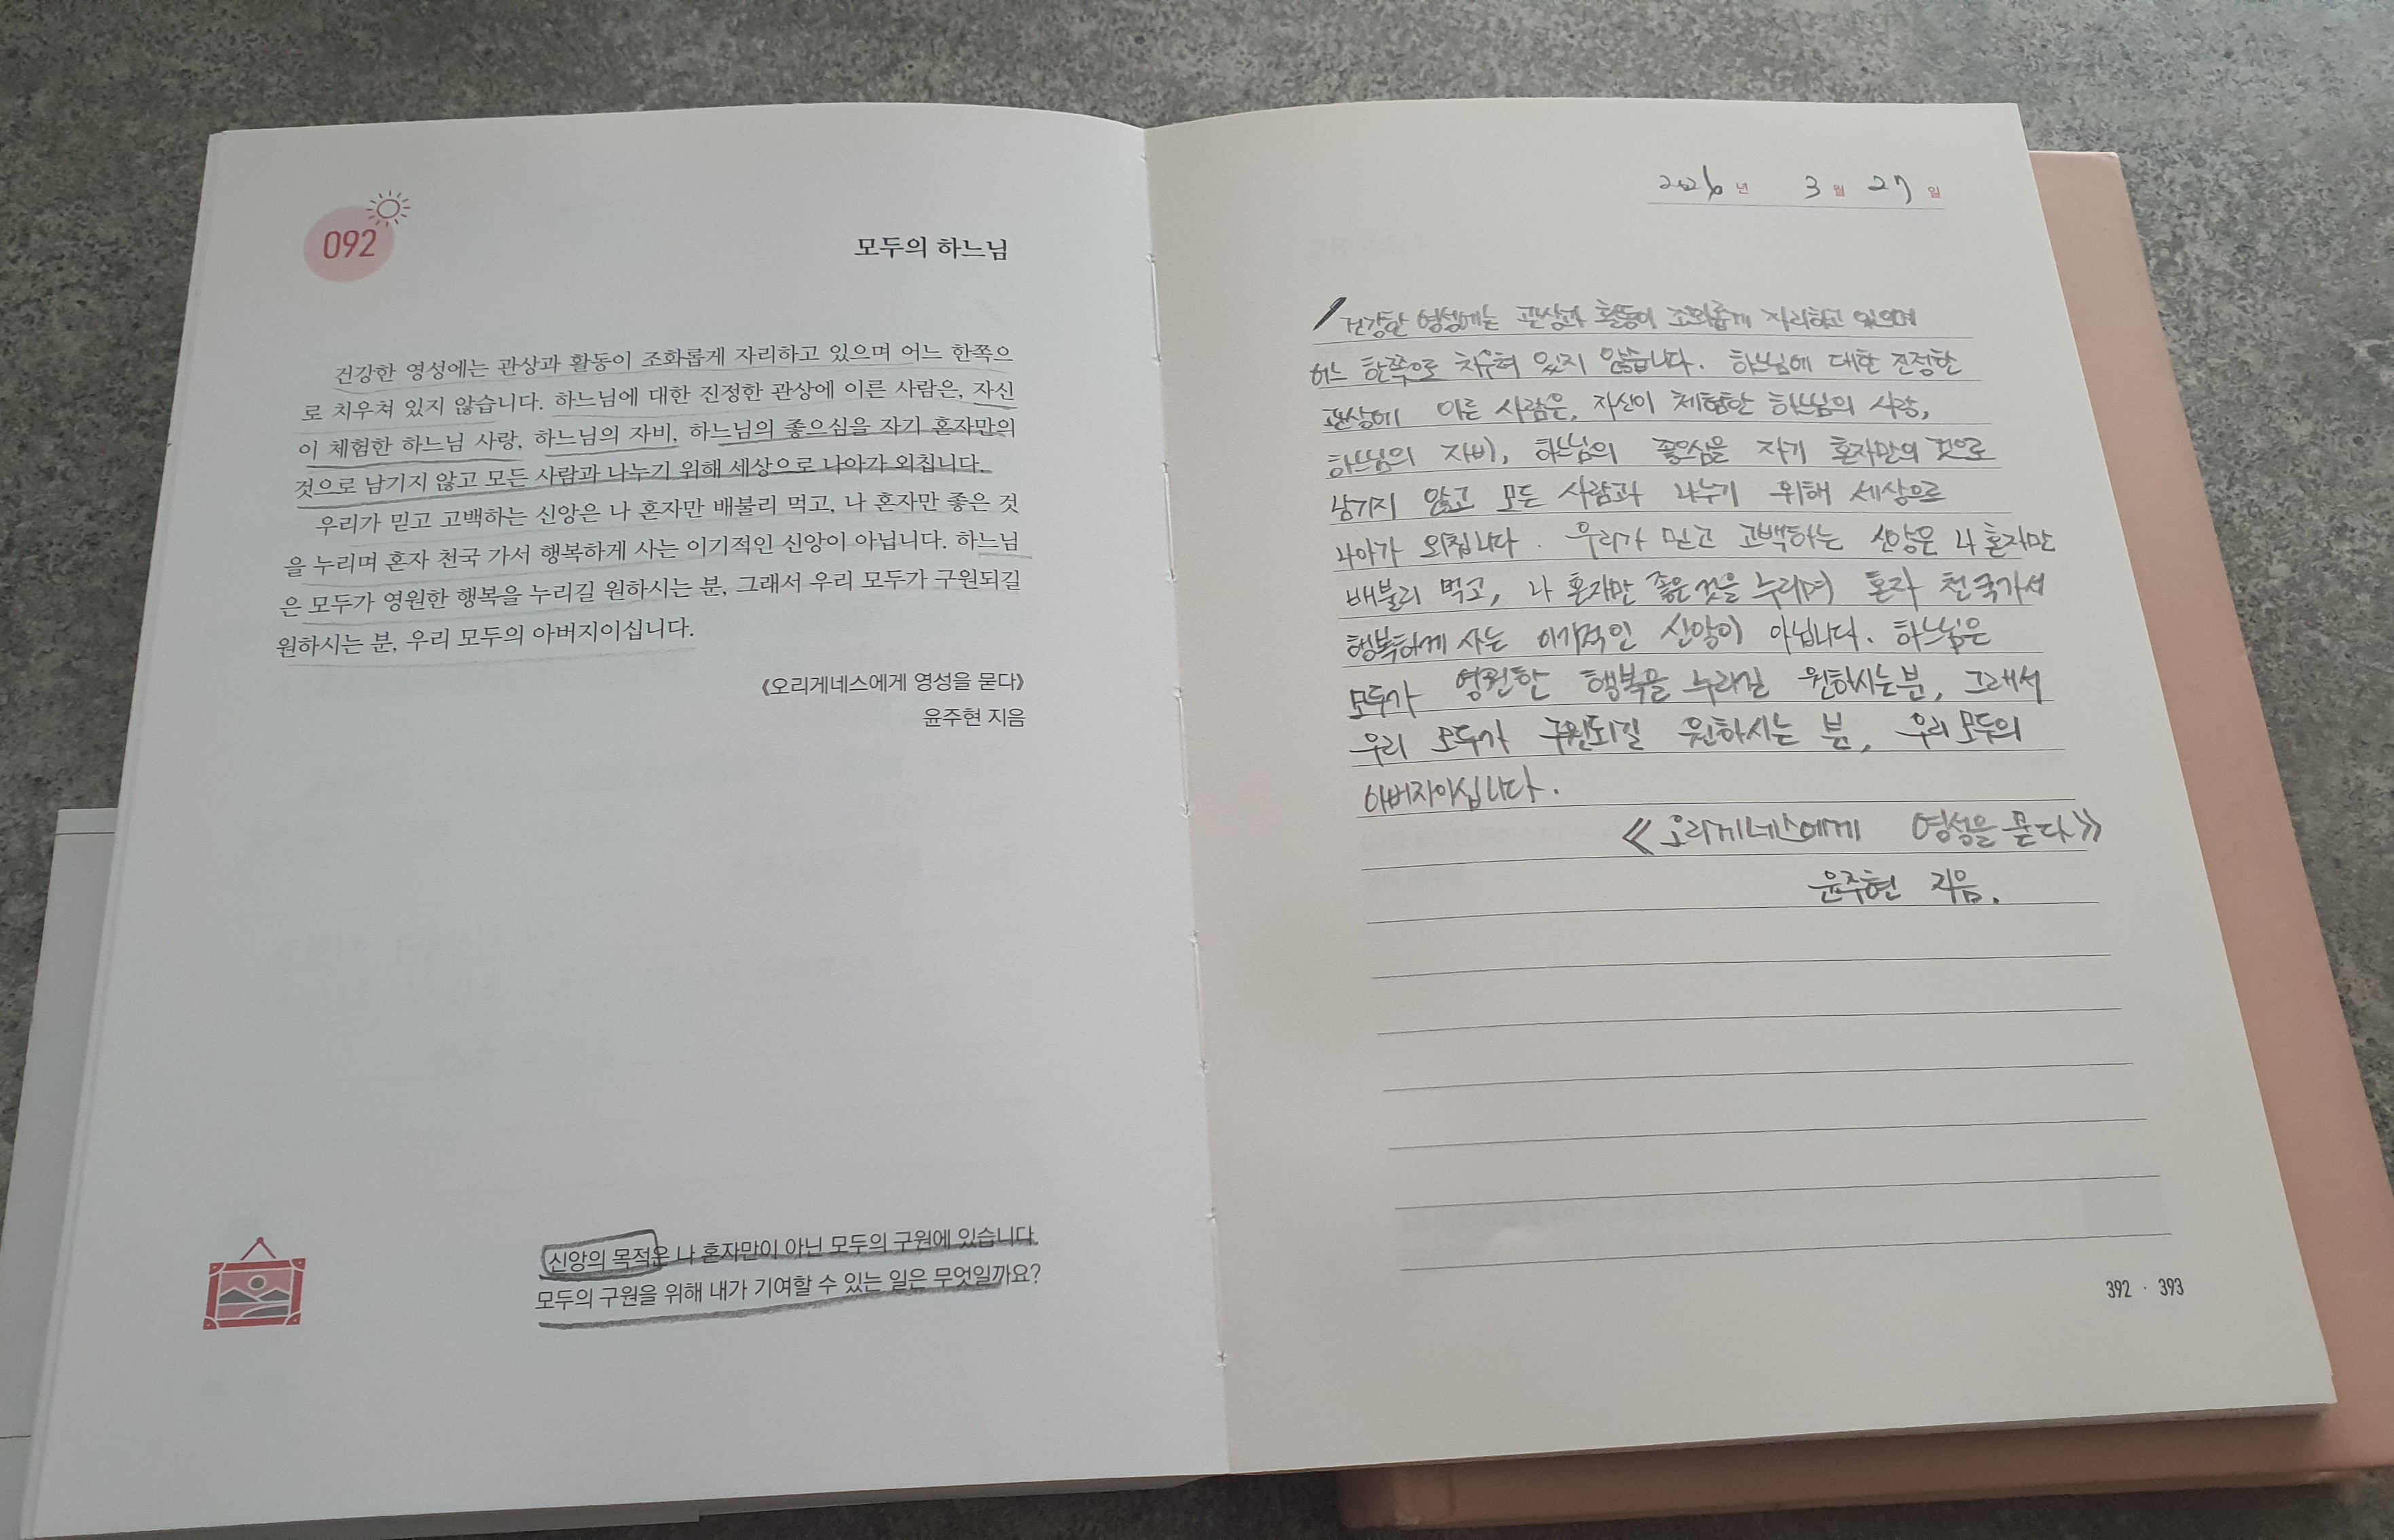 092
모두의 하느님
건강한 영성에는 관상과 활동이 조화롭게 자리하고 있으며 어느 한쪽으
로 치우쳐 있지 않습니다. 하느님에 대한 진정한 관상에 이른 사람은, 자신
이 체험한 하느님 사랑, 하느님의 자비, 하느님의 좋으심을 자기 혼자만의
것으로 남기지 않고 모든 사람과 나누기 위해 세상으로 나아가 외칩니다.
우리가 믿고 고백하는 신앙은 나 혼자만 배불리 먹고, 나 혼자만 좋은 것
을 누리며 혼자 천국 가서 행복하게 사는 이기적인 신앙이 아닙니다. 하느님
은 모두가 영원한 행복을 누리길 원하시는 분, 그래서 우리 모두가 구원되길
원하시는 분, 우리 모두의 아버지이십니다.
《오리게네스에게 영성을 묻다》
윤주현 지음
신앙의 목적은 나 혼자만이 아닌 모두의 구원에 있습니다.
모두의 구원을 위해 내가 기여할 수 있는 일은 무엇일까요?
2026년 3월 27일
건강한 영성에는 관상과 활동이 조화롭게 자리하고 있으며
어느 한쪽으로 치우쳐 있지 않습니다. 하느님에 대한 진정한
관상에 이른 사람은, 자신이 체험한 하느님의 사랑,
하느님의 자비, 하느님의 좋으심을 자기 혼자만의 것으로
남기지 않고 모든 사람과 나누기 위해 세상으로
나아가 외칩니다. 우리가 믿고 고백하는 신앙은 나 혼자만
배불리 먹고, 나 혼자만 좋은 것을 누리며 혼자 천국가서
행복하게 사는 이기적인 신앙이 아닙니다. 하느님은
모두가 영원한 행복을 누리길 원하시는 분, 그래서
우리 모두가 구원되길 원하시는 분, 우리 모두의
아버지이십니다.
《오리게네스에게 영성을 묻다》
윤주현 지음.
392 · 393